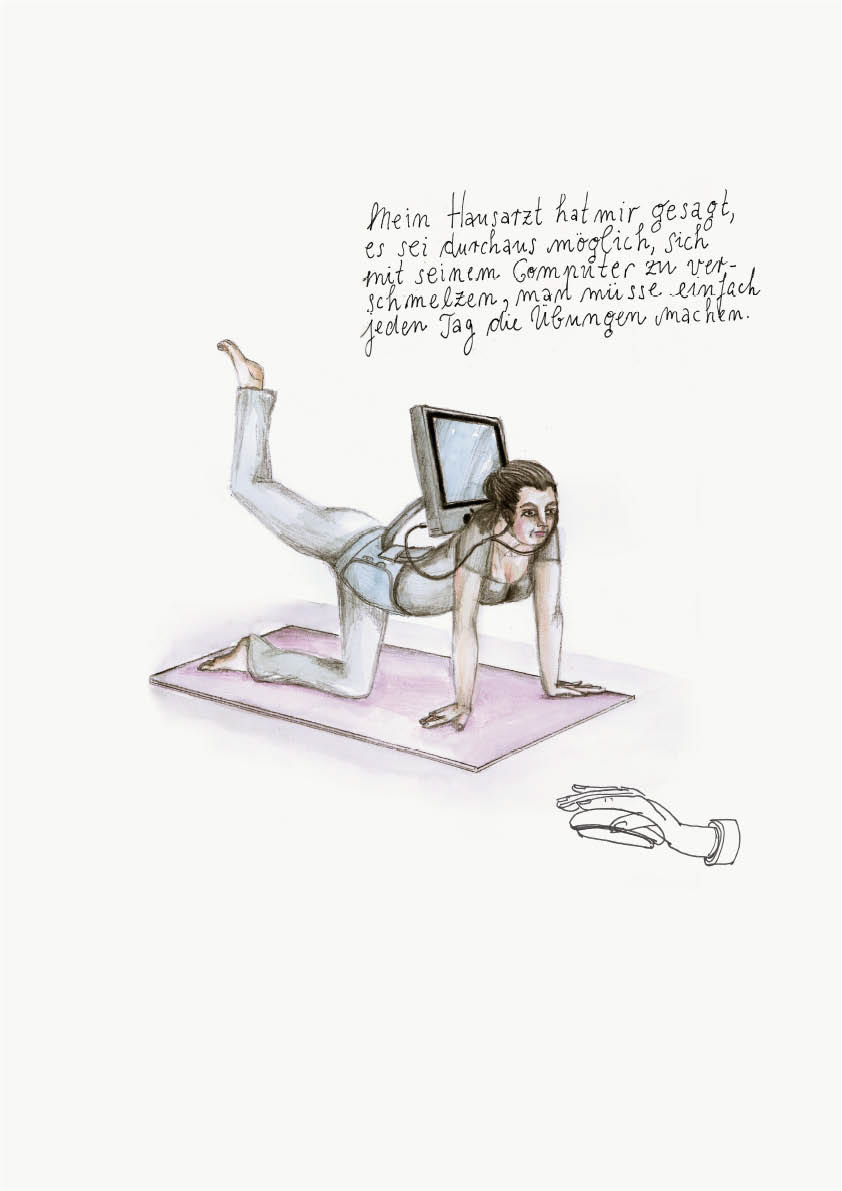 Mein Hausarzt hat mir gesagt,
es sei durchaus möglich, sich
mit seinem Computer zu ver-
schmelzen, man müsse einfach
jeden Tag die Übungen machen.